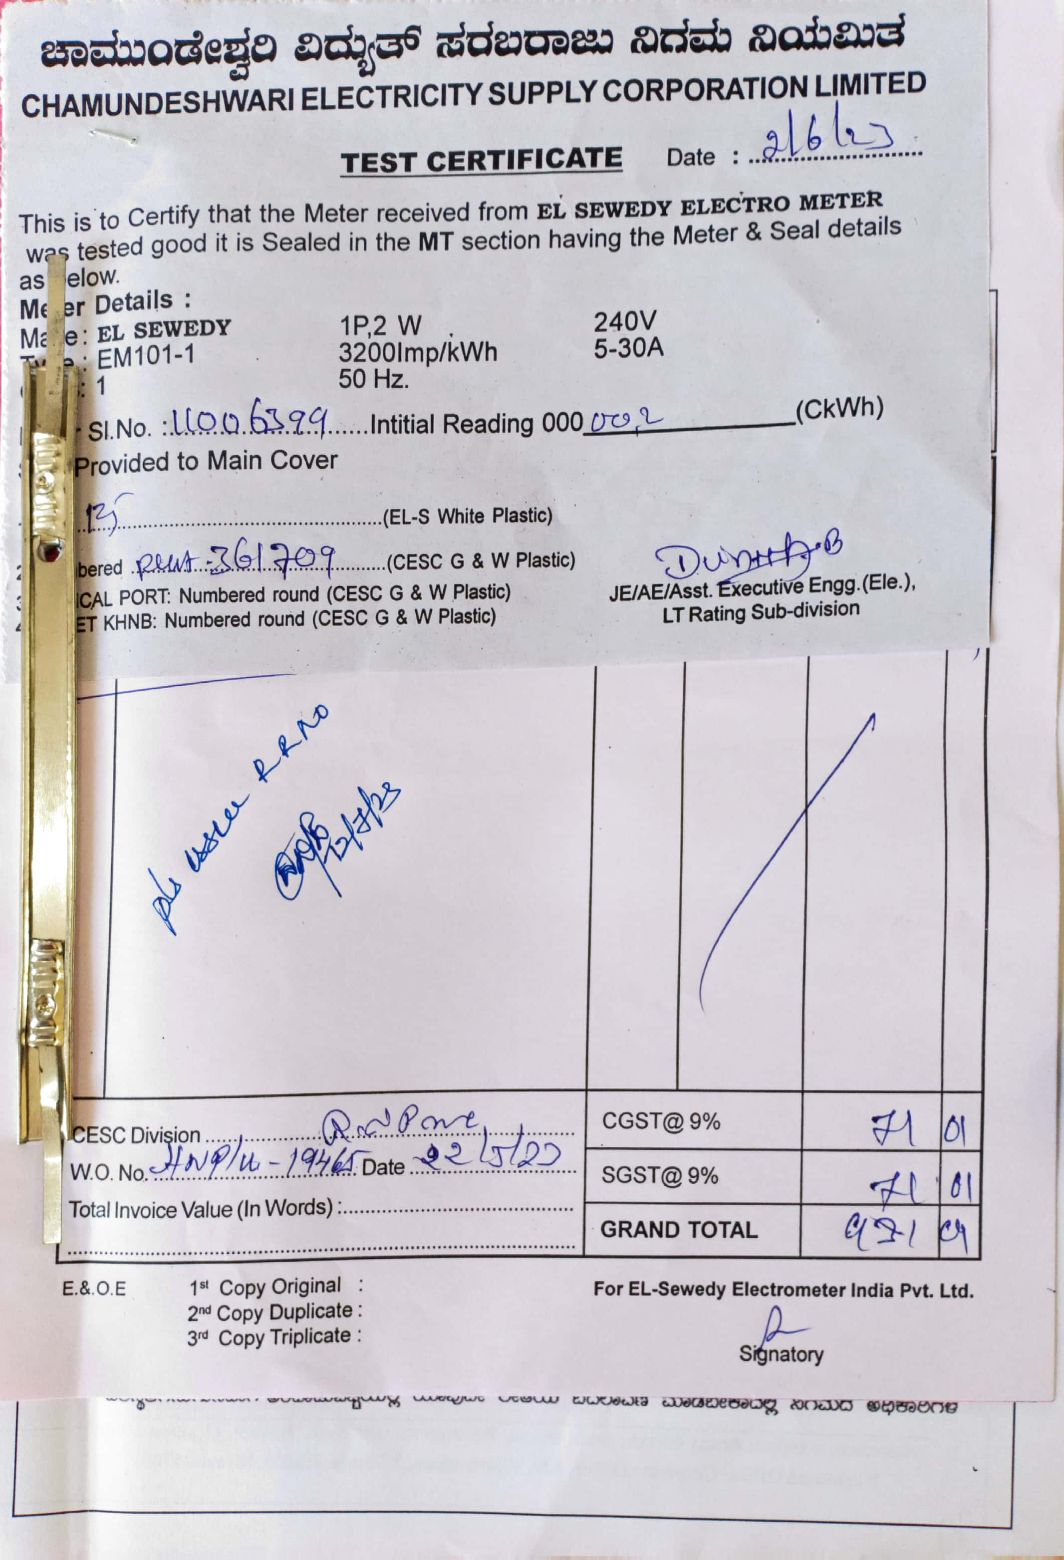 ಚಾಮುಂಡೇಶ್ವರಿ ವಿದ್ಯುತ್ ಸರಬರಾಜು ನಿಗಮ ನಿಯಮಿತ
CHAMUNDESHWARI ELECTRICITY SUPPLY CORPORATION LIMITED
TEST CERTIFICATE Date : 2/6/23
This is to Certify that the Meter received from EL SEWEDY ELECTRO METER
was tested good it is Sealed in the MT section having the Meter & Seal details
as elow.
Me er Details :
Ma e: EL SEWEDY 1P,2 W 240V
: EM101-1 3200Imp/kWh 5-30A
: 1 50 Hz.
Sl.No. : 11006399 Intitial Reading 000 00,2 (CkWh)
Provided to Main Cover
(EL-S White Plastic)
bered 361709 (CESC G & W Plastic)
ICAL PORT: Numbered round (CESC G & W Plastic) JE/AE/Asst. Executive Engg.(Ele.),
ET KHNB: Numbered round (CESC G & W Plastic) LT Rating Sub-division
pls issue R R No
12/7/23
CESC Division CGST@ 9% 71 01
W.O. No. 19465 Date 22/5/23
SGST@ 9% 71 01
Total Invoice Value (In Words) :
GRAND TOTAL 931 01
E.&.O.E 1st Copy Original : For EL-Sewedy Electrometer India Pvt. Ltd.
2nd Copy Duplicate :
3rd Copy Triplicate :
Signatory